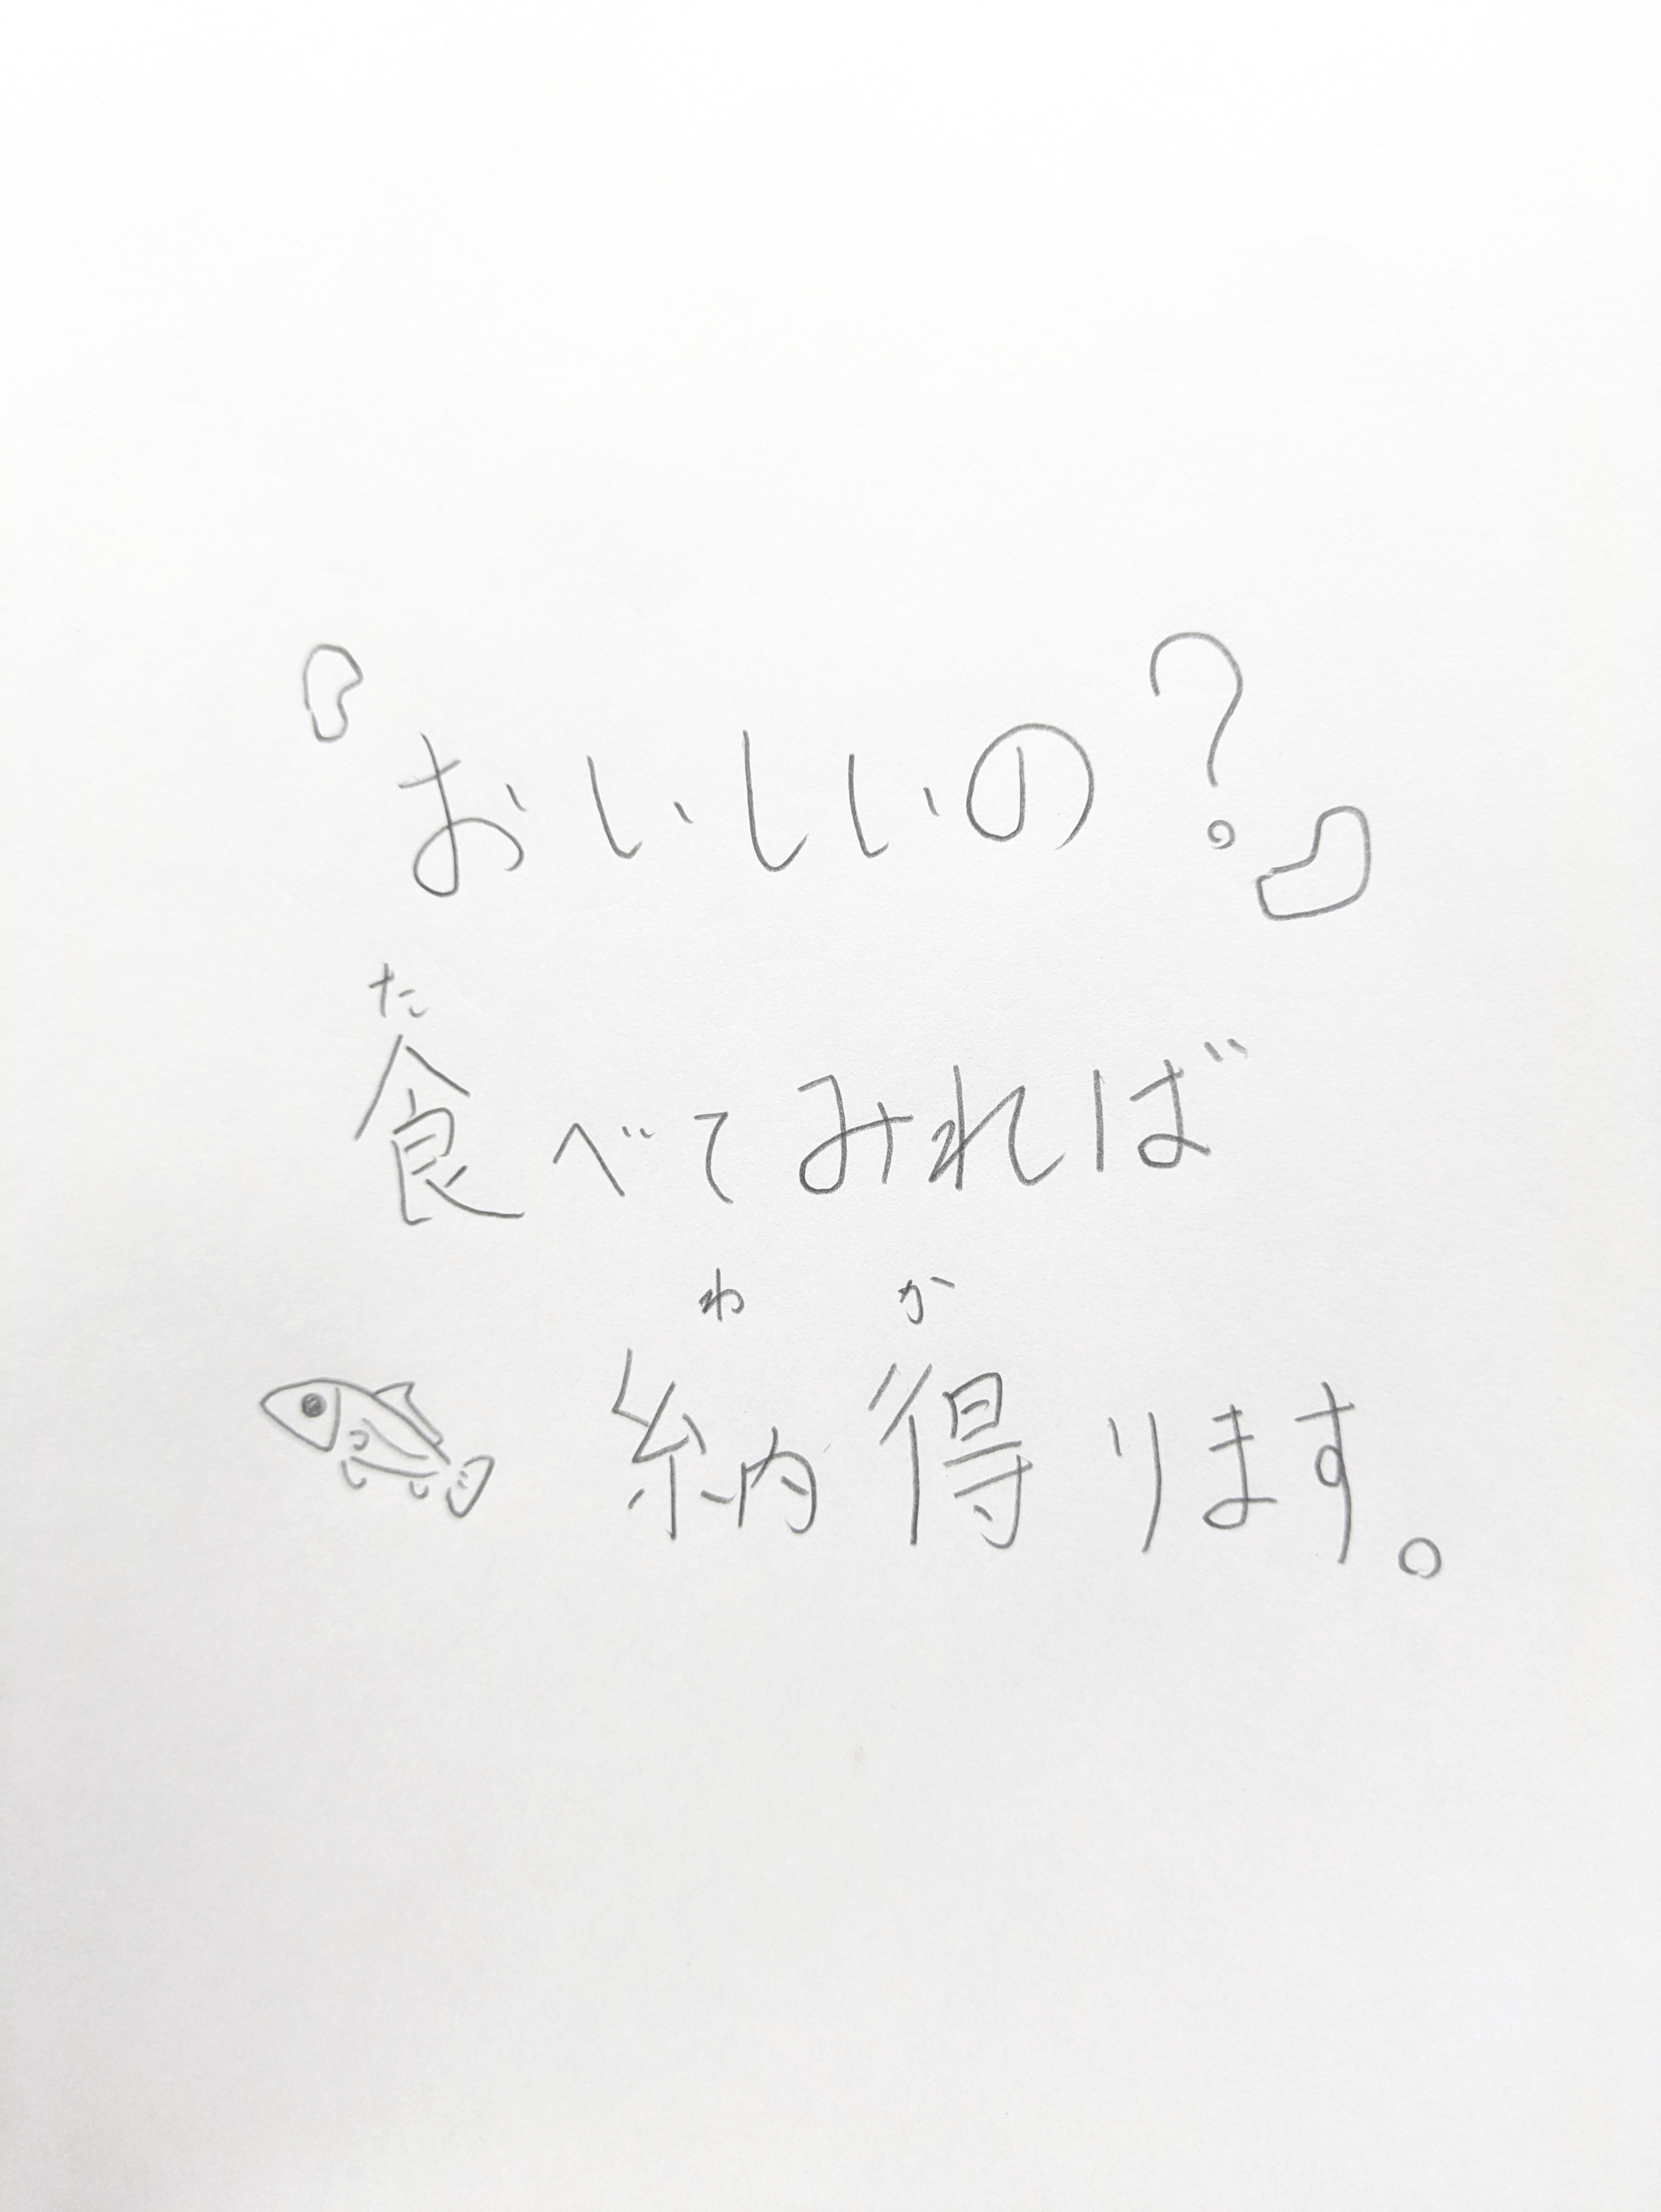 『おいしいの？』
た
食べてみれば
わか
納得ります。